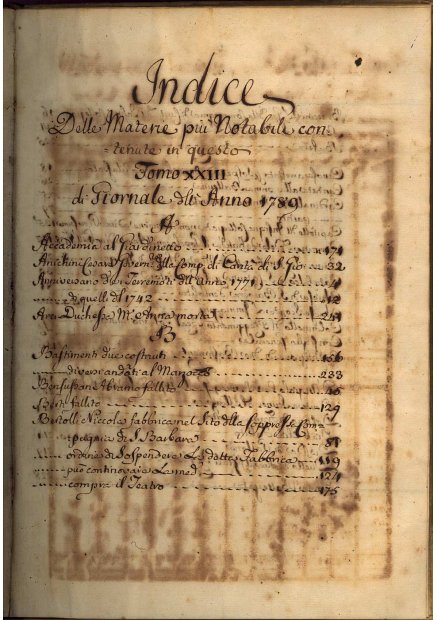 Indice
Delle Materie più Notabili con
=tenute in questo
Tomo XXIII
di Giornale dell' Anno 1789
A
Accademia al Giardinetto 171
della Comp. di Carità di S. Gio 32
Anniversario de Terremoti dell' anno 1771 4
di quello del 1742 12
Arci Duchessa M. Anna morta 241
B
Bastimenti due costruiti 156
diversi andati al Marocco 233
Abramo fallito 46
fallito 129
Bertolli Niccola fabbrica nel Sito della soppressa Com=
=pagnia di S. Barbara 81
ordine di sospendere la detta Fabbrica 119
può continovare la med. 124
compra il Teatro 175